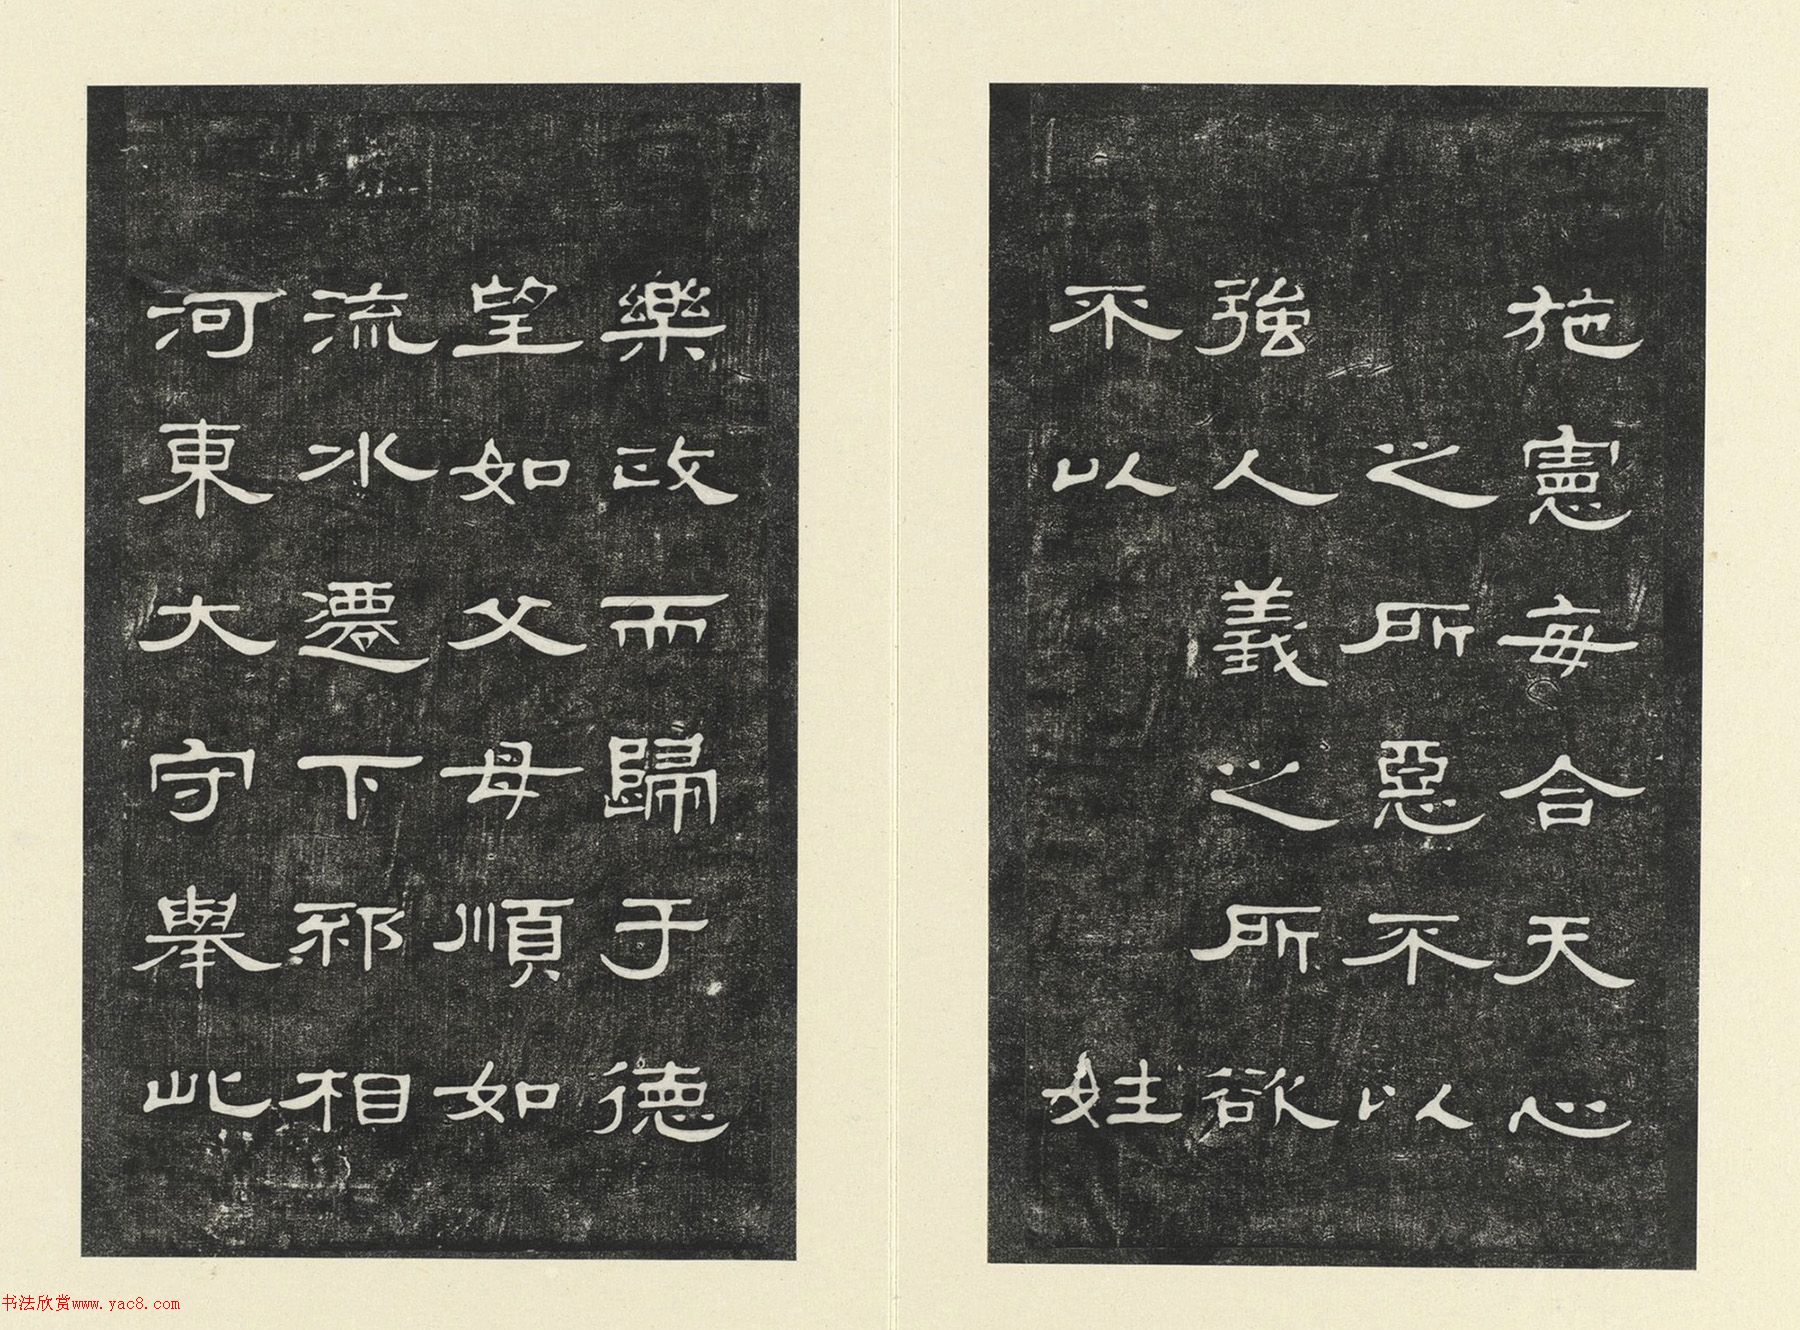 施憲每合天心
之所惡不以
強人義之所欲
不以姓
樂政而歸于德
望如父母順如
流水遷下邳相
河東大守舉此
书法欣赏www.yac8.com